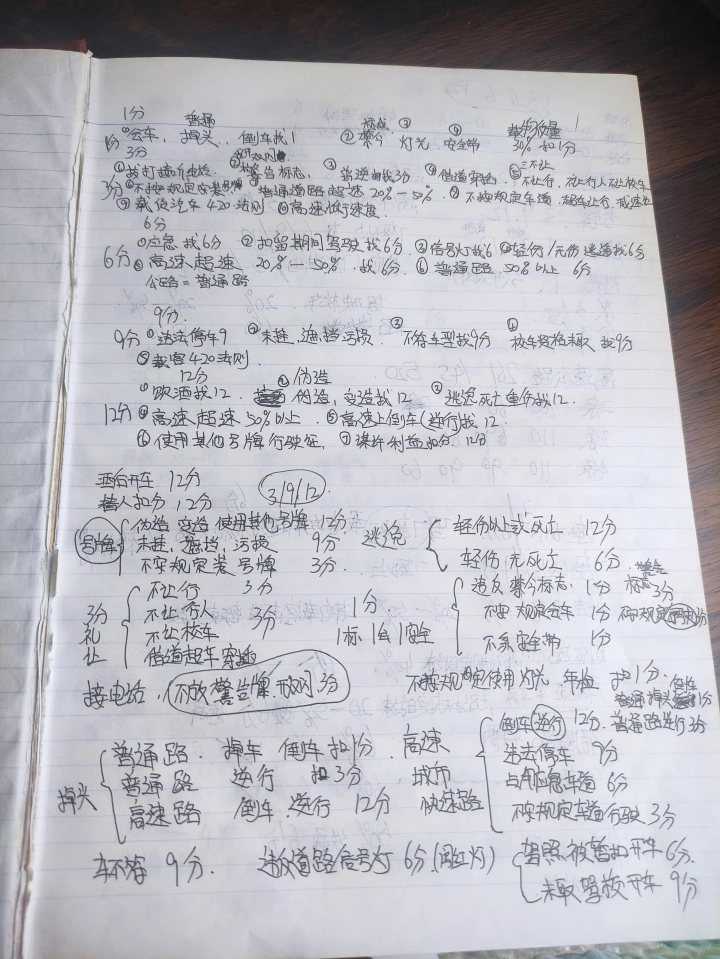 1分 普通 标志 ③
1分 ①会车, 掉头, 倒车找1 ②禁令 灯光 ④安全带 30% 扣1分
3分
①拨打接听电话 警告标志, ③普逆找3分 ④借道穿插 ⑤三不让 不让行, 不让行人不让校车
3分 不按规定安装号牌 普通道路超速 20%-50% 不按规定车道, 超车让行,
载货汽车 420法则 ⑩高速低行速度.
6分
①应急找6分 ②扣留期间驾驶找6分 ③信号灯找6 ④轻伤/无伤逃逸找6分
6分 ⑤高速超速 20%—50% 找6分 ⑥普通路 50%以上 6分
公路=普通路
9分
9分 ①违法停车9 ②未挂,遮挡污损 ③不符车型找9分 ④校车资格未取 找9分
⑤载客420法则
12分 ②伪造
①饮酒找12. 伪造,变造找12 ③逃逸死亡重伤找12.
12分 ④高速超速50%以上 ⑤高速上倒车(逆行找12
⑥使用其他号牌行驶证, ⑦谋取利益扣分 12分
酒后开车 12分
替人扣分 12分 3/9/12
号牌 伪造 变造 使用其他号牌 12分 逃逸 轻伤以上或死亡 12分
未挂,遮挡,污损 9分
不按规定装号牌 3分 轻伤无死亡 6分
3分礼让 不让行 3分 违反禁令标志 1分 3分
不让行人 3分 1分 不按规定会车 1分
不让校车 1标1会1安全 不系安全带 1分
借道超车穿插
接电话, 不放警告牌 3分 不按规定使用灯光 年检 扣1分
掉头1分
倒车逆行 12分 普通路逆行3分
掉头 普通路. 掉车 倒车扣1分 高速 违法停车 9分
普通路 逆行 扣3分 城市 占用应急车道 6分
高速路 倒车.逆行 12分 快速路 不按规定车道行驶 3分
车不符 9分. 违反道路信号灯 6分(闯红灯) 驾照被暂扣开车6分
未取驾校开车 9分